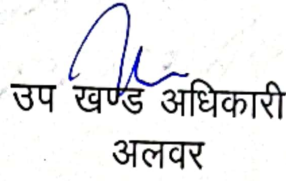 उप खण्ड अधिकारी
अलवर